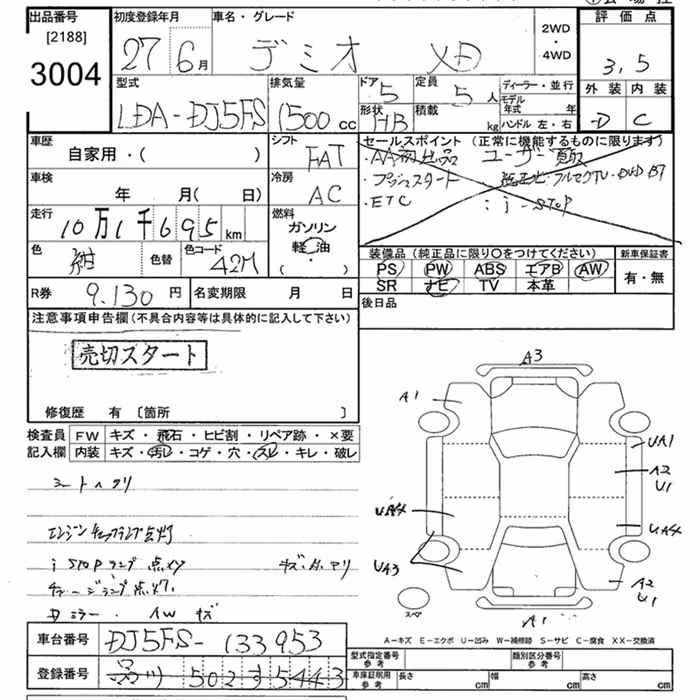 出品番号
[2188]
3004
初度登録年月
27 6月
車名・グレード
デミオ XD
2WD
・
4WD
評価点
3,5
外装 内装
D C
型式
LDA-DJ5FS
排気量
1500 cc
ドア
5
定員
5 人
形状
HB
積載
kg
ディーラー・並行
モデル年式 年
ハンドル 左・右
車歴
自家用・( )
シフト
FAT
車検
年 月( 日)
冷房
AC
走行
10万1千695 km
燃料
ガソリン
軽油
( ・ )
色
紺
色替
色コード
42M
セールスポイント (正常に機能するものに限ります)
・AA初出品 ユーザー買取
・プッシュスタート 純正ナビ・フルセグTV・DVD BT
・ETC :i-STOP
装備品(純正品に限り〇をつけてください)
新車保証書
PS PW ABS エアB AW
SR ナビ TV 本革
有・無
R券 9.130 円
名変期限 月 日
後日品
注意事項申告欄(不具合内容等は具体的に記入して下さい)
売切スタート
修復歴 有 〔箇所 〕
検査員
記入欄
FW キズ・飛石・ヒビ割・リペア跡・×要
内装 キズ・汚レ・コゲ・穴・スレ・キレ・破レ
シートヘタリ
エンジンチェックランプ点灯
i STOPランプ点灯
キズ・凹アリ
チャージランプ点灯
Dミラー、AWキズ
A3
A1
UA1
A2
U1
UA4
UA4
UA3
A2
U1
A1
スペア
A-キズ E-エクボ U-凹み W-補修跡 S-サビ C-腐食 XX-交換済
車台番号
DJ5FS-133953
登録番号
品川 502す5443
型式指定番号
参考
類別区分番号
参考
車庫証明用
参考
長さ cm
幅 cm
高さ cm